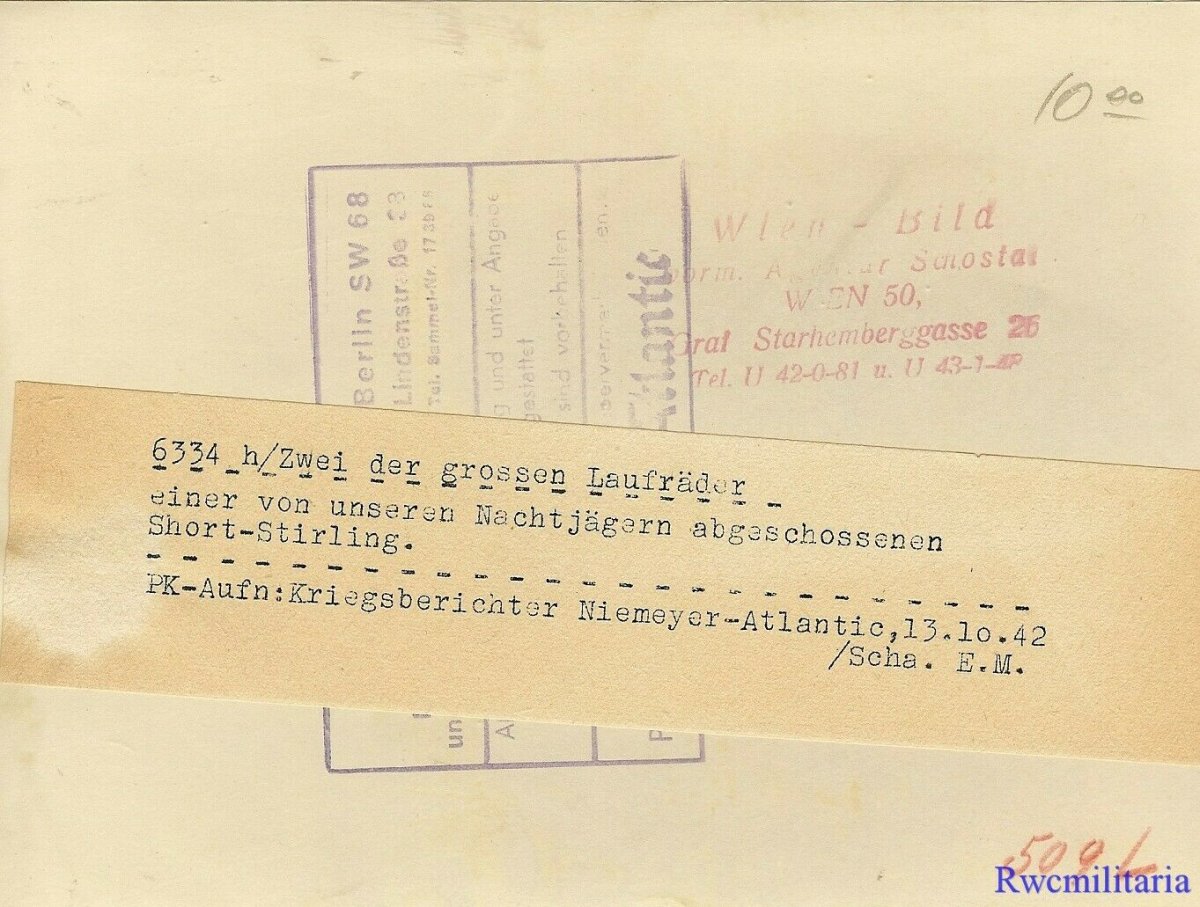 10 00
Berlin SW 68
Lindenstraße
Tel. Sammel-Nr.
und unter Angabe
gestattet
sind vorbehalten
Atlantic
Wien - Bild
vorm. Agentur Schostal
WIEN 50,
Graf Starhemberggasse 26
Tel. U 42-0-81 u. U 43-1-
6334 h/Zwei der grossen Laufräder
einer von unseren Nachtjägern abgeschossenen
Short-Stirling.
PK-Aufn:Kriegsberichter Niemeyer-Atlantic,13.10.42
/Scha. E.M.
un
A
P
Rwcmilitaria